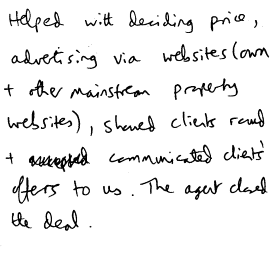 Helped with deciding price,
advertising via websites (own
+ other mainstream property
websites), showed clients round
+ communicated clients'
offers to us. The agent closed
the deal.